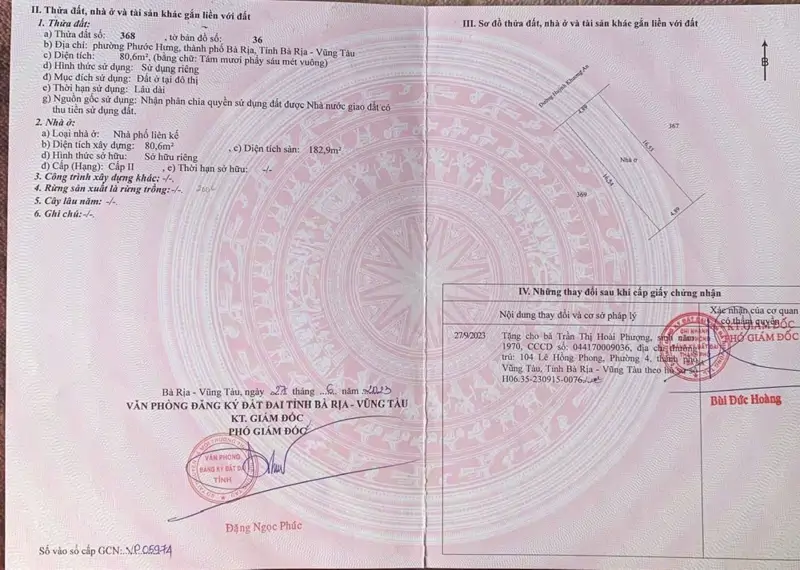 II. Thửa đất, nhà ở và tài sản khác gắn liền với đất
1. Thửa đất:
a) Thửa đất số: 368 , tờ bản đồ số: 36
b) Địa chỉ: phường Phước Hưng, thành phố Bà Rịa, Tỉnh Bà Rịa - Vũng Tàu
c) Diện tích: 80,6m², (bằng chữ: Tám mươi phẩy sáu mét vuông)
d) Hình thức sử dụng: Sử dụng riêng
đ) Mục đích sử dụng: Đất ở tại đô thị
e) Thời hạn sử dụng: Lâu dài
g) Nguồn gốc sử dụng: Nhận phân chia quyền sử dụng đất được Nhà nước giao đất có
thu tiền sử dụng đất.
2. Nhà ở:
a) Loại nhà ở: Nhà phố liên kế
b) Diện tích xây dựng: 80,6m² , c) Diện tích sàn: 182,9m²
d) Hình thức sở hữu: Sở hữu riêng
đ) Cấp (Hạng): Cấp II , e) Thời hạn sở hữu: -/-
3. Công trình xây dựng khác: -/-.
4. Rừng sản xuất là rừng trồng: -/-.
5. Cây lâu năm: -/-.
6. Ghi chú: -/-.
Bà Rịa - Vũng Tàu, ngày 27 tháng 6 năm 2023
VĂN PHÒNG ĐĂNG KÝ ĐẤT ĐAI TỈNH BÀ RỊA - VŨNG TÀU
KT. GIÁM ĐỐC
PHÓ GIÁM ĐỐC
VĂN PHÒNG
ĐĂNG KÝ ĐẤT ĐAI
TỈNH
Đặng Ngọc Phúc
Số vào sổ cấp GCN: VP.05974
III. Sơ đồ thửa đất, nhà ở và tài sản khác gắn liền với đất
B
Đường Huỳnh Khương An
4,89
367
16,53
Nhà ở
16,54
369
4,89
IV. Những thay đổi sau khi cấp giấy chứng nhận
Nội dung thay đổi và cơ sở pháp lý
Xác nhận của cơ quan
có thẩm quyền
27/9/2023 Tặng cho bà Trần Thị Hoài Phượng, sinh năm
1970, CCCD số: 044170009036, địa chỉ thường
trú: 104 Lê Hồng Phong, Phường 4, thành phố
Vũng Tàu, Tỉnh Bà Rịa - Vũng Tàu theo hồ sơ số
H06.35-230915-0076
KT.GIÁM ĐỐC
PHÓ GIÁM ĐỐC
Bùi Đức Hoàng